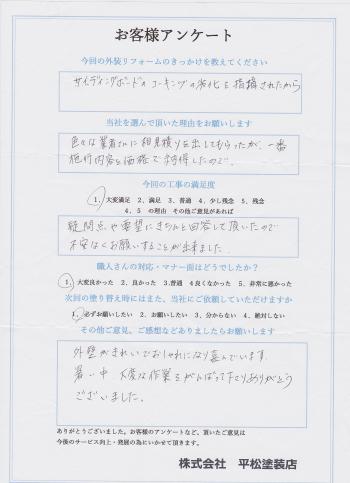 お客様アンケート
今回の外装リフォームのきっかけを教えてください
サイディングボードのコーキングの劣化を指摘されたから
当社を選んで頂いた理由をお願いします
色々な業者さんに相見積りを出してもらったが、一番
施行内容と価格で納得したので。
今回の工事の満足度
1、大変満足 2、満足 3、普通 4、少し残念 5、残念
4、5 の理由 その他ご意見があれば
疑問点や要望にきちんと回答して頂いたので
不安なくお願いすることが出来ました。
職人さんの対応・マナー面はどうでしたか?
1、大変良かった 2、良かった 3、普通 4良くなかった 5、非常に悪かった
次回の塗り替え時にはまた、当社にご依頼していただけますか
1、必ずお願いしたい 2、お願いしたい 3、分からない 4、絶対しない
その他ご意見、ご感想などありましたらお願いします
外壁がきれいでおしゃれになり喜んでいます。
暑い中 大変な作業をがんばって下さりありがとう
ございました。
ありがとうございました。お客様のアンケートなど、頂いたご意見は
今後のサービス向上・発展の為にいかせて頂きます。
株式会社 平松塗装店